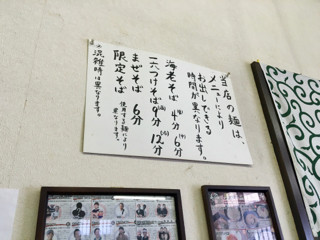 当店の麺は、
メニューにより
お出しできる
時間が異なります。
海老そば 4分 6分
一六つけそば 9分 12分
まぜそば 6分
限定そば 使用する麺により
異なります。
※混雑時は異なります。